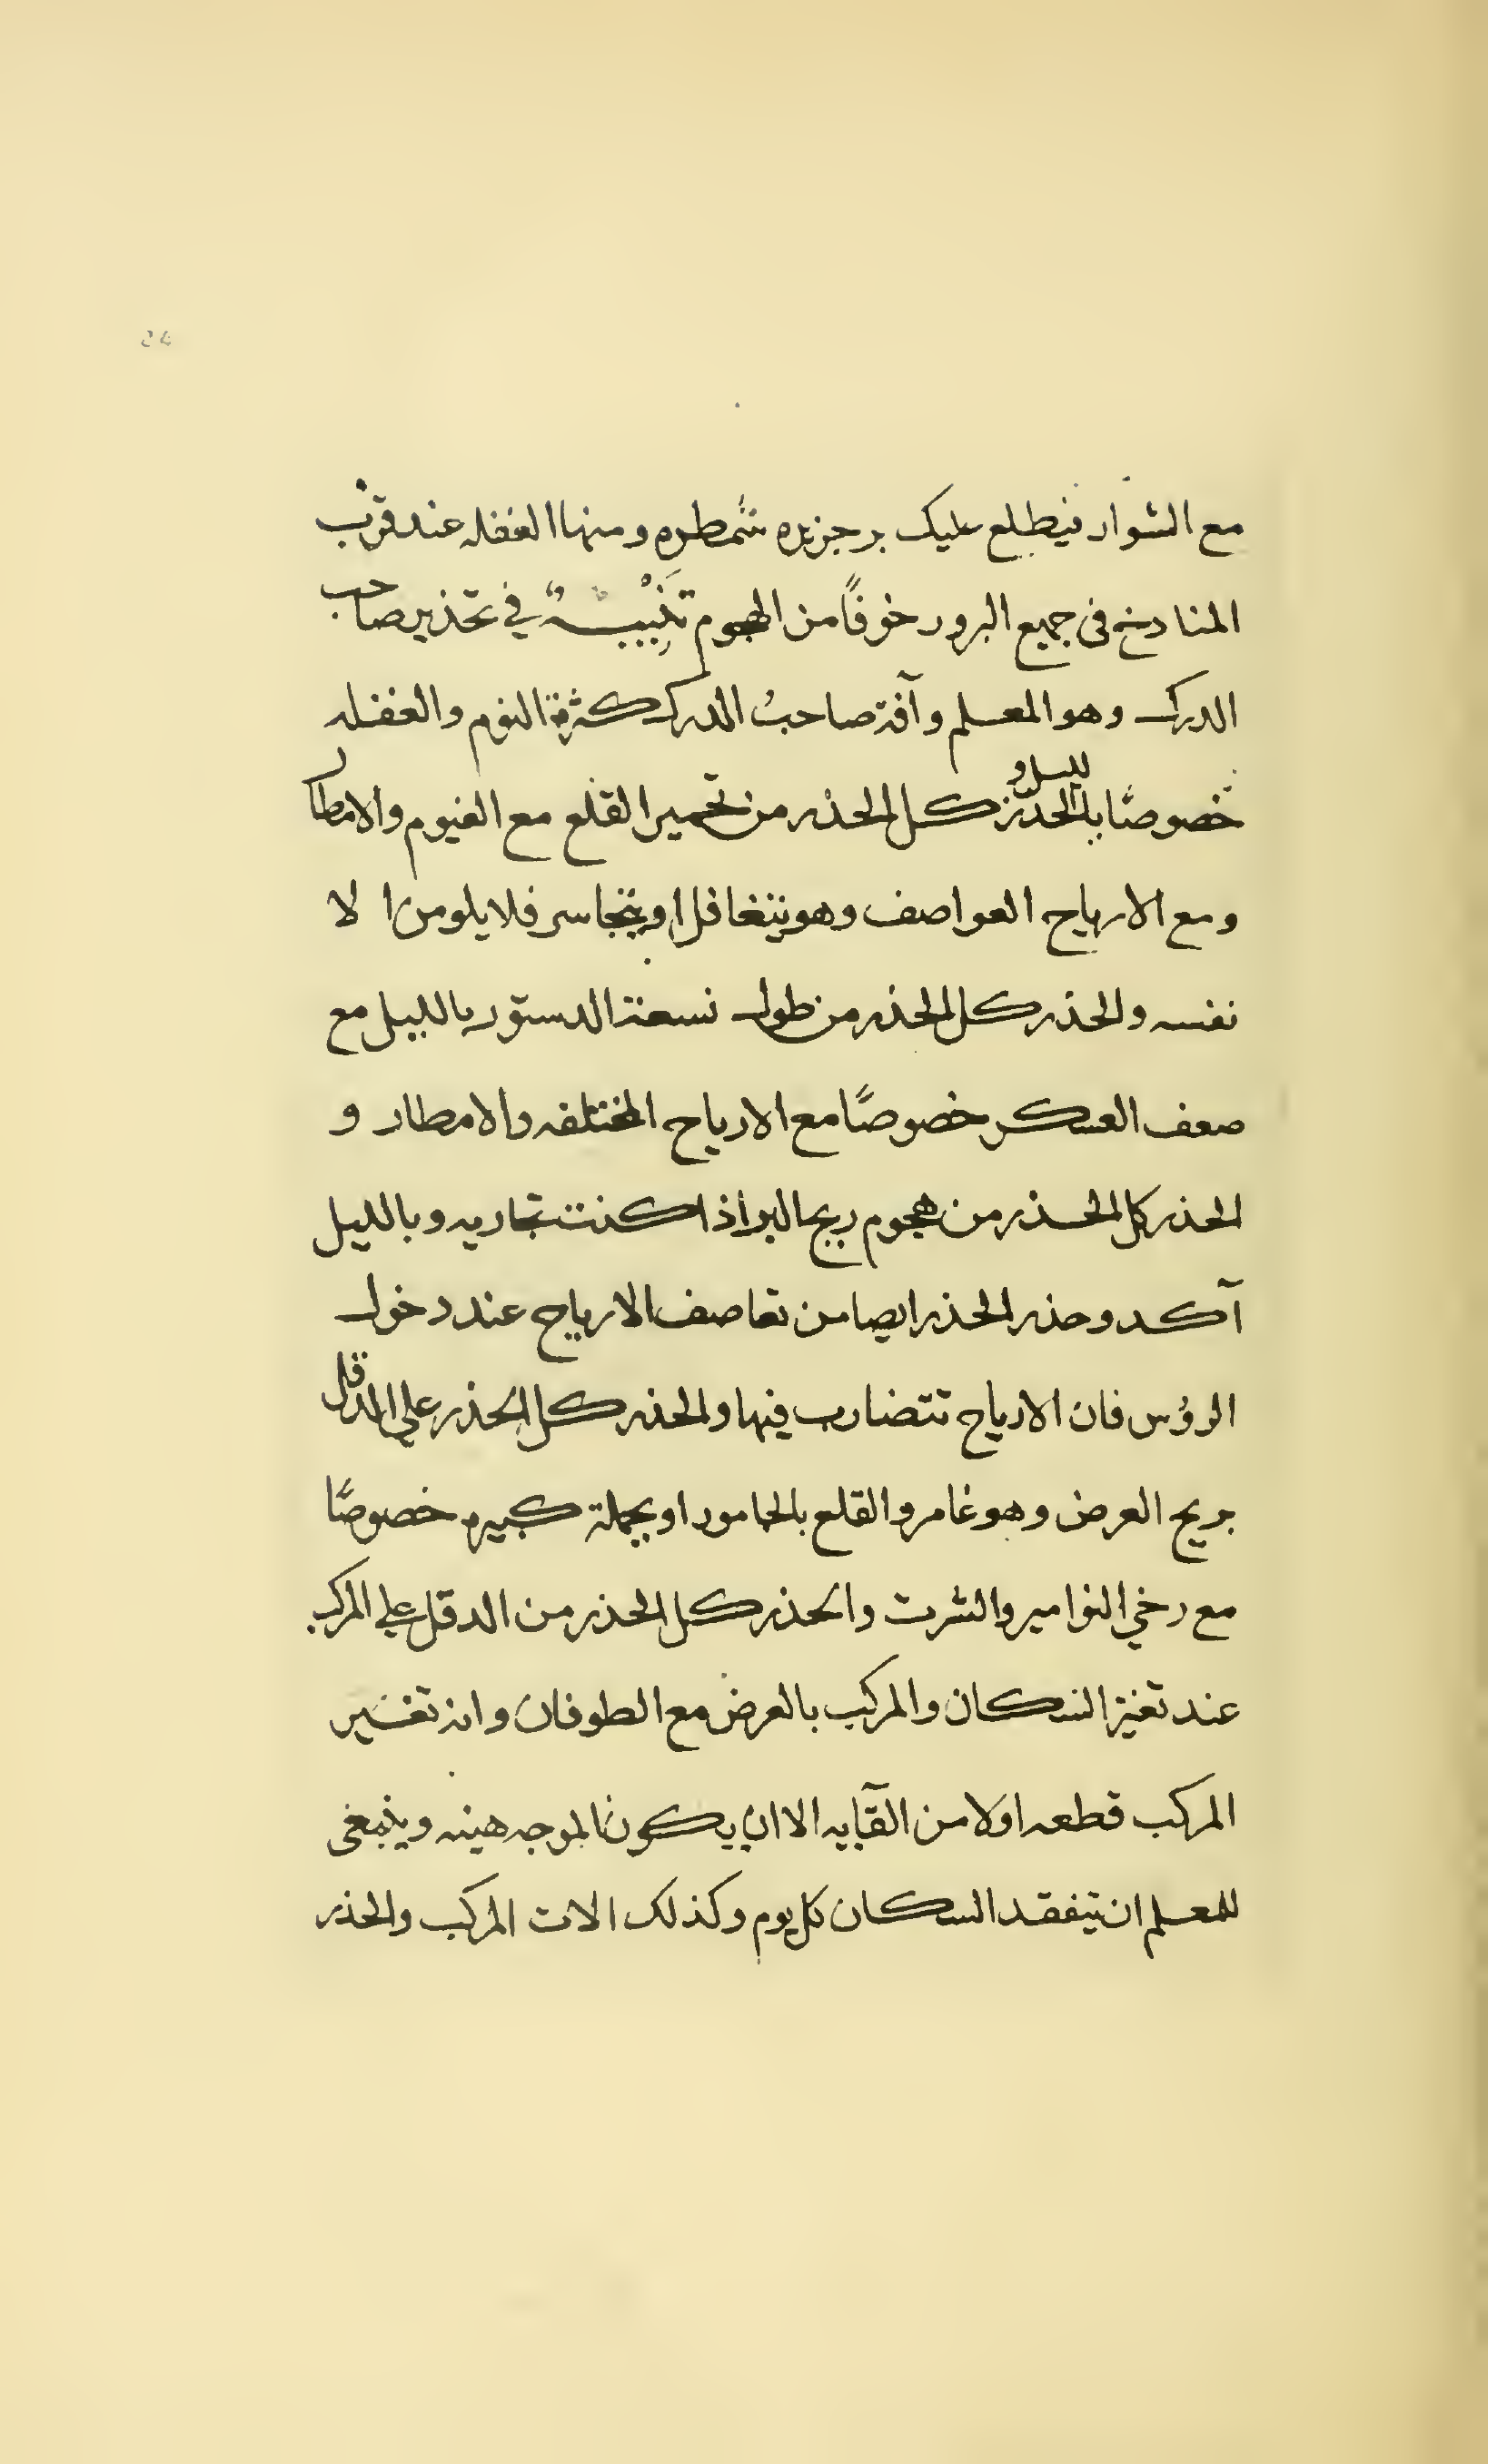 مع الشوار فيطلع عليك بر جزيره شمطره ومنها الغفله عند قرب
المنادخ فى جميع البرور خوفًا من الهجوم تَنْبِيهٌ في تحذير صاحب
الدرك وهو المعلم وآفة صاحبُ الدرك كثرة النوم والغفله
خصوصًا بالليل والحذر كل الحذر من تحمير القلع مع الغيوم والامطا
ومع الارياح العواصف وهو يتغافل او يتجاسر فلا يلومن الا
نفسه والحذر كل الحذر من طول نسخة الدستور بالليل مع
ضعف العسكر خصوصًا مع الارياح المختلفه والامطار و
الحذر كل الحذر من هجوم ريح البر اذا كنت تجاريه وبالليل
آكد وحذر الحذر ايضا من تعاصف الارياح عند دخول
الروُس فان الارياح تتضارب فيها والحذر كل الحذر على الدقل
بريح العرض وهو غامر والقلع بالجامور او بجملة كبيره خصوصًا
مع رخي النوامير والشرت والحذر كل الحذر من الدقل على المركب
عند تغيز السكان والمركب بالعرض مع الطوفان وانه تغسير
المركب قطعه اولا من القآيه الا ان يكون الموجه هينه وينبغى
للمعلم ان يتفقد السكان كل يوم وكذلك الات المركب والحذر